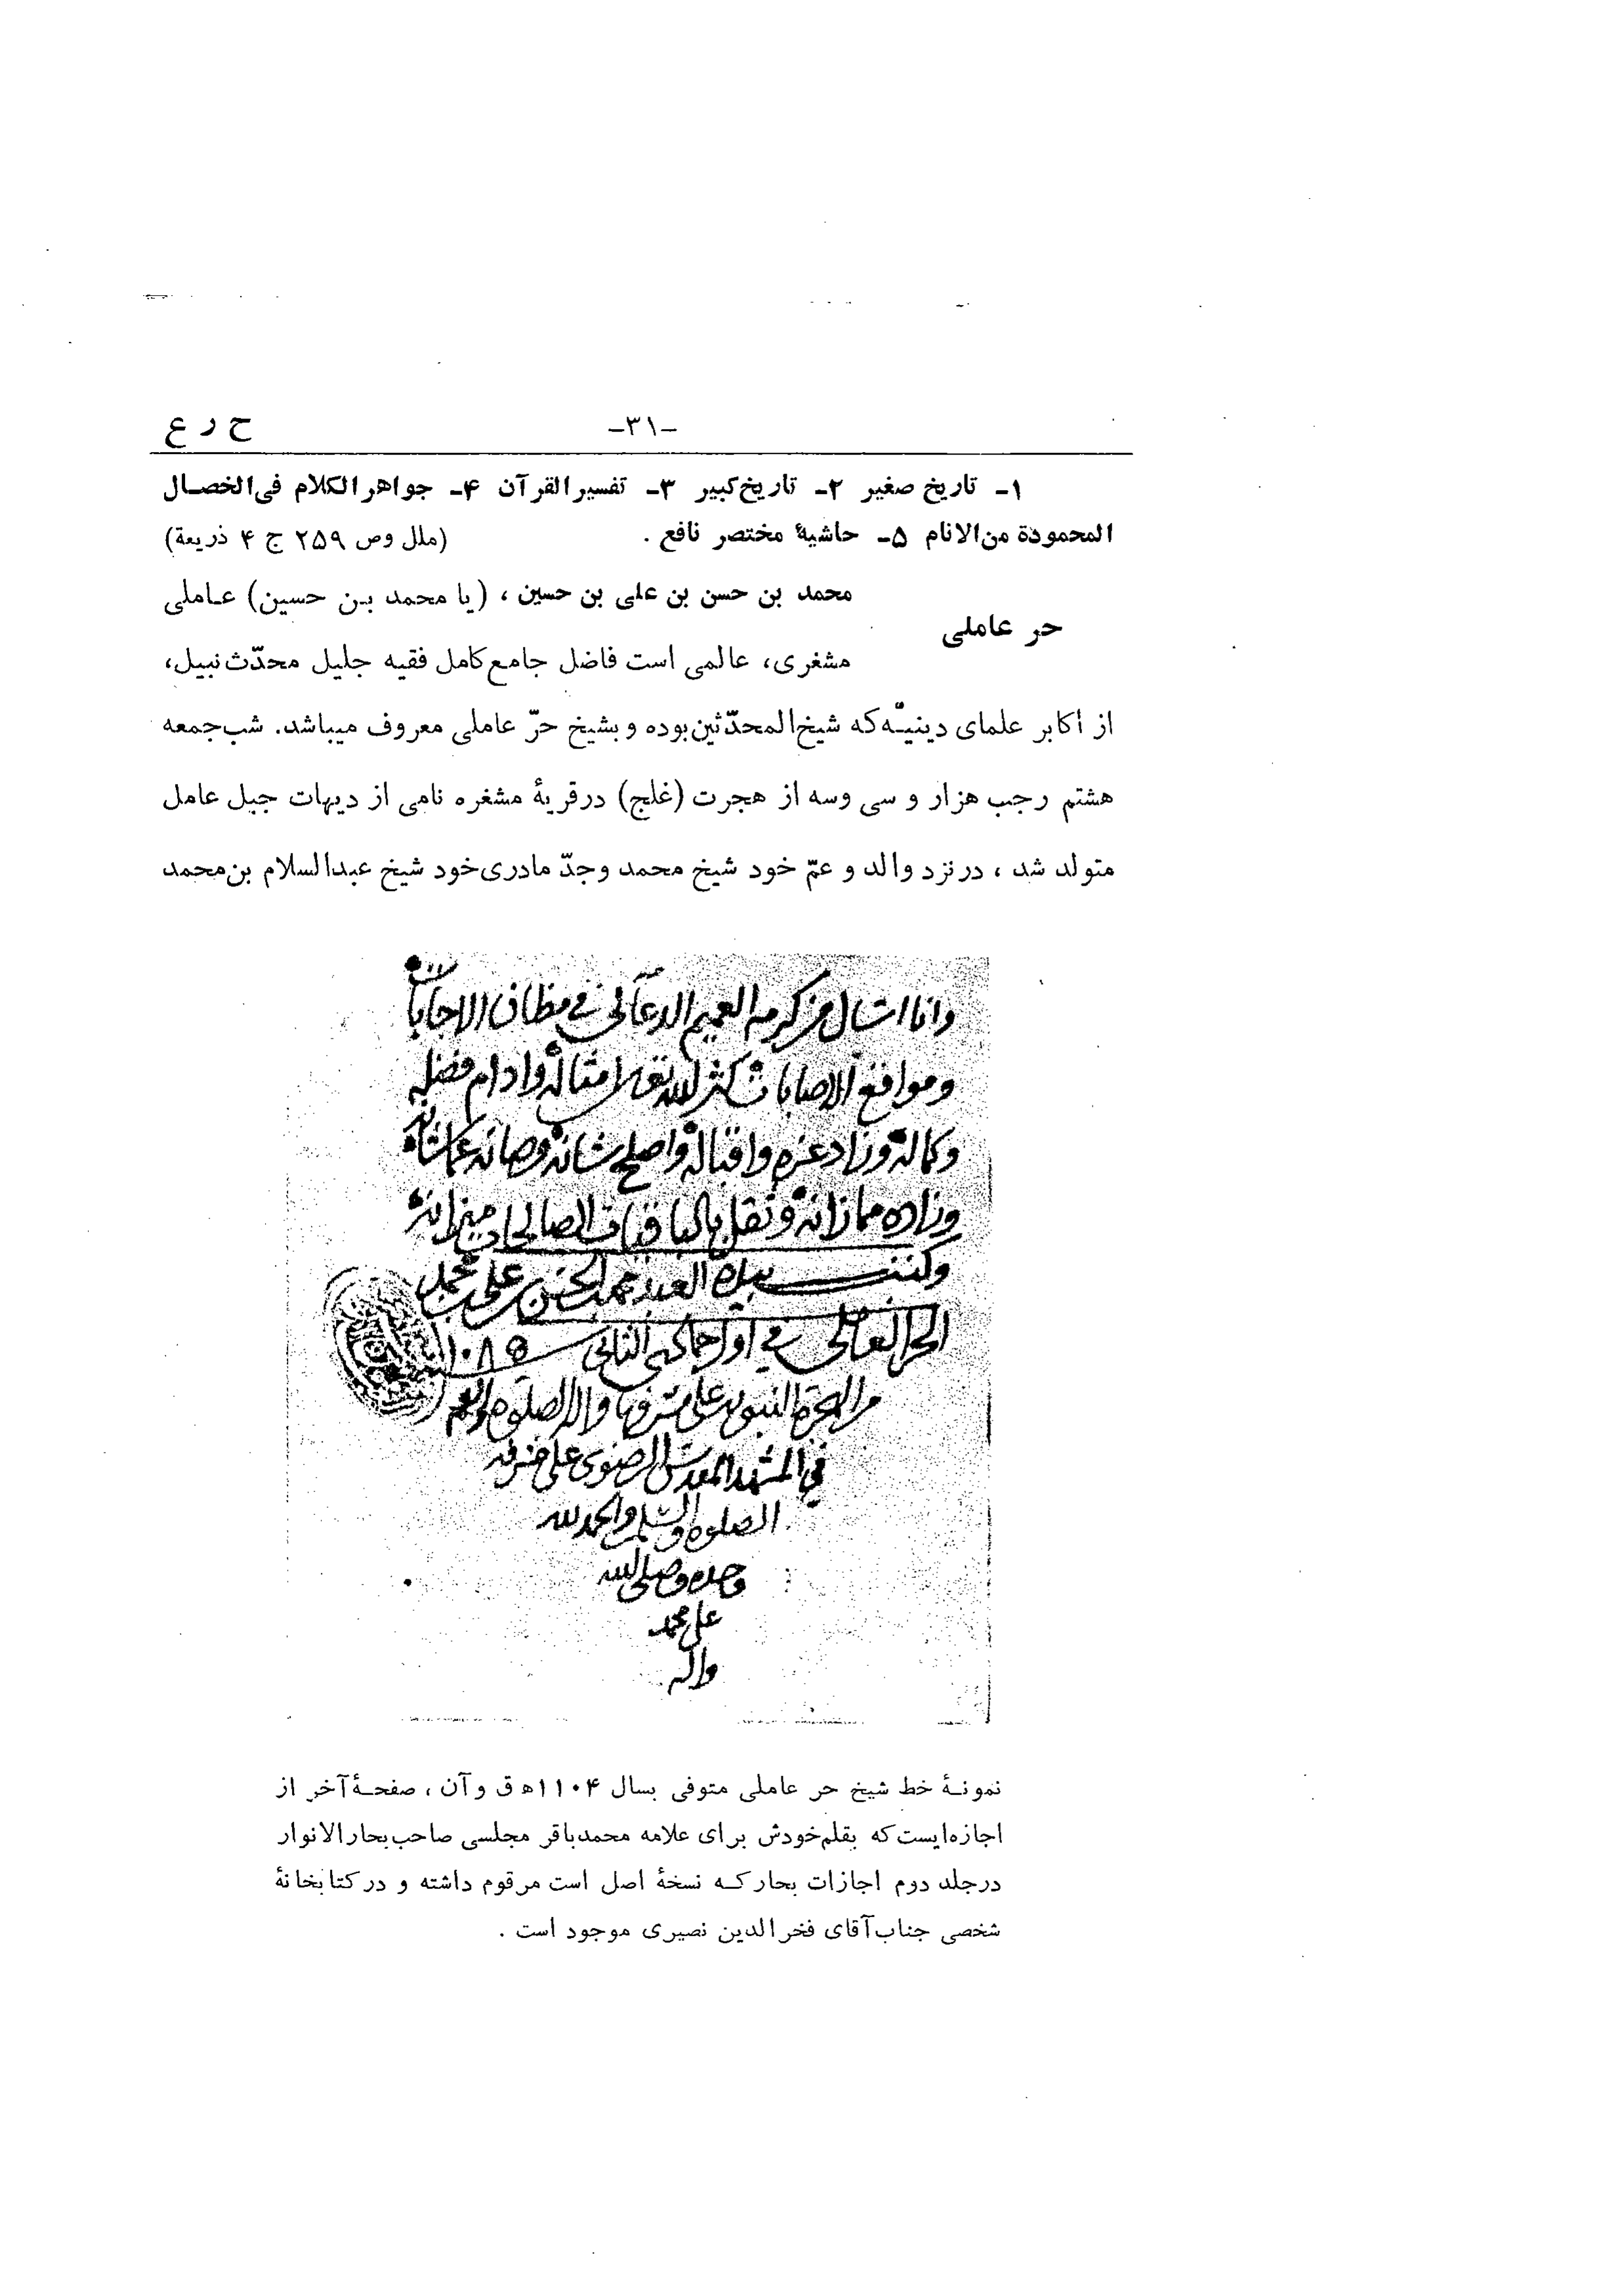 ح ر ع
-۳۱-
۱- تاریخ صغیر ۲- تاریخ کبیر ۳- تفسیر القرآن ۴- جواهر الکلام فی الخصال
المحمودة من الانام ۵- حاشیهٔ مختصر نافع .
(ملل وص ۲۵۹ ج ۴ ذریعة)
حر عاملی
محمد بن حسن بن علی بن حسین ، (یا محمد بن حسین) عاملی
مشغری، عالمی است فاضل جامع کامل فقیه جلیل محدّث نبیل،
از اکابر علمای دینیّه که شیخ المحدّثین بوده و بشیخ حرّ عاملی معروف میباشد. شب جمعه
هشتم رجب هزار و سی وسه از هجرت (غلج) درقریهٔ مشغره نامی از دیهات جبل عامل
متولد شد ، درنزد والد و عمّ خود شیخ محمد وجدّ مادری خود شیخ عبدالسلام بن محمد
وانا اسال من کرمه العمیم الدعا لی فی مظان الاجابات
ومواقع الاصابات کثر الله تعالی امثاله وادام فضله
وکماله وزاد عزه واقباله واصلح شانه وصانه عما شانه
وزاده مما زانه وثقل بالباقیات الصالحات میزانه
وکتب بیده العبد محمد بن الحسن بن علی بن محمد
الحر العاملی فی اول جمادی الثانی ۱۰۸۵
من الهجرة النبویه علی مشرفها واله الصلوة والسلم
فی المشهد المقدس الرضوی علی مشرفه
الصلوة والسلم والحمد لله
وحده وصلی الله
علی محمد
واله
نمونهٔ خط شیخ حر عاملی متوفی بسال ۱۱۰۴ ه ق وآن ، صفحهٔ آخر از
اجازه‌ایست که بقلم خودش برای علامه محمدباقر مجلسی صاحب بحارالانوار
درجلد دوم اجازات بحار که نسخهٔ اصل است مرقوم داشته و در کتابخانهٔ
شخصی جناب آقای فخرالدین نصیری موجود است .